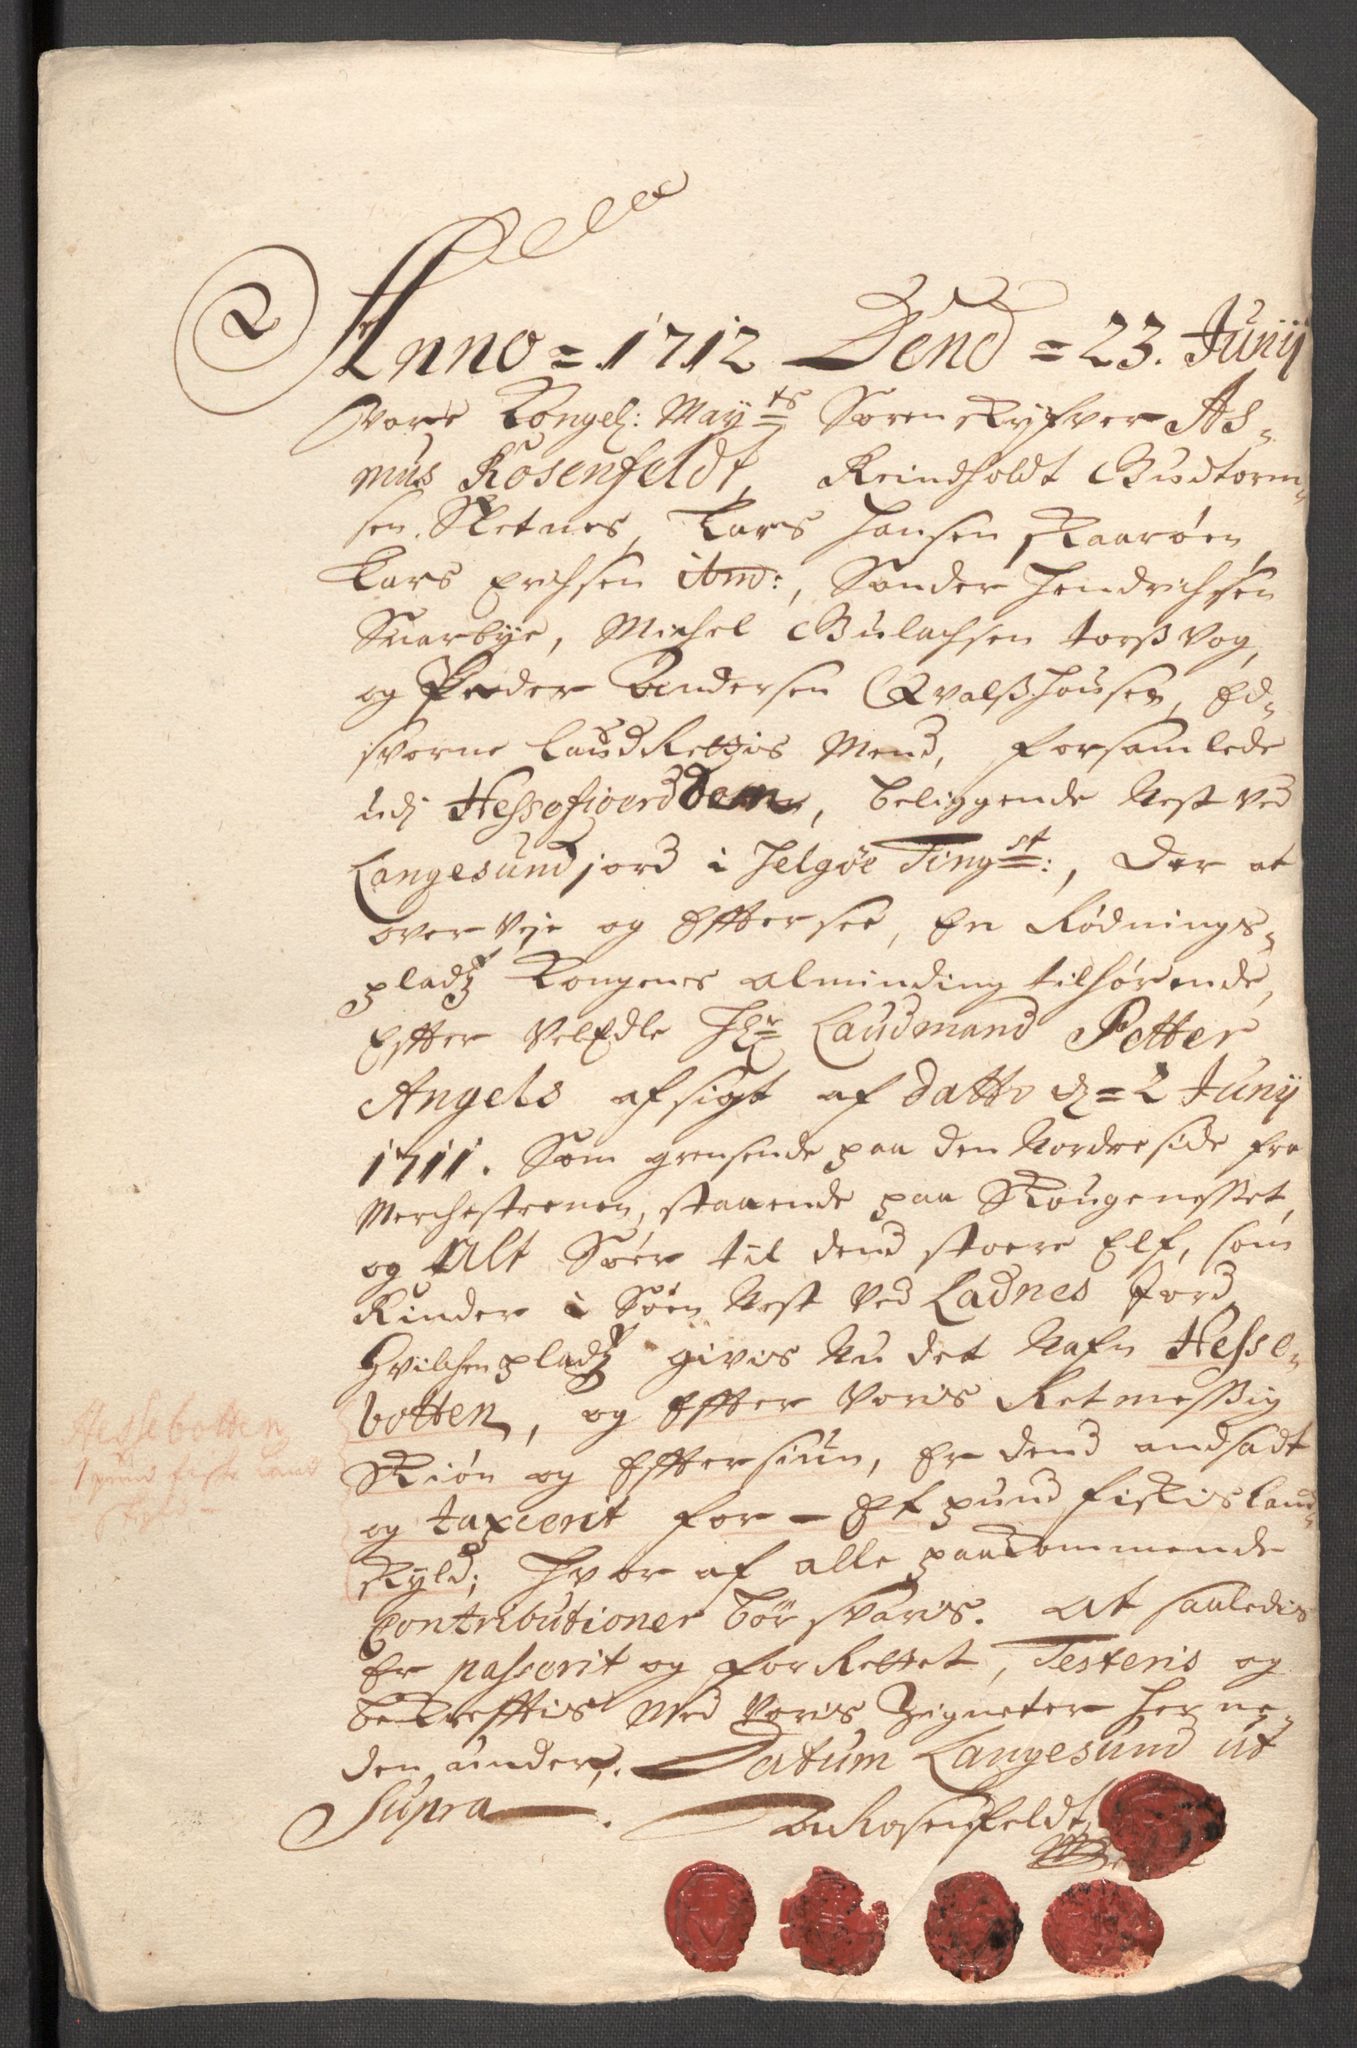 Anno = 1712 Dend = 23. Junij
Vare Kongel: May:ts Sorenskrifver As-
mus Rosenfeldt, Reindholdt Gudtorm-
sen Sletnes, Lars Hansen Skaarøen
Lars Erichsen itm:, Sander Hendrichsen
Snarbye, Michel Gulachsen torßvog,
og Peder Andersen Qvalßhousen, Ed-
svorne LaudRettis Mend, forsamlede
udj Hessefioerd, beliggende Nest ved
Langesund jord i Helgøe Ting:st:, Der at
over Veje og Efftersee, En Rødnings-
pladtz Kongens alminding tilhørende,
Efter VelEdle Hr Laudmand Petter
Angels afsigt af datto d = 2 Junij
1711. Som grensende paa den Nordre side fra
Merchestenen, staaende paa Skougenesset,
og Alt Søer til dend stoere Elf, som
Rinder i Søen Nest Ved Ladnes Jord
Hvilchen pladtz givis Nu det Nafn Hesse-
botten, og Effter Voris Retmessig
Skiøn og Efftersiun, Er dend andsadt
og taxerit for – Et pund fiskis land-
skyld; Hvor af alle paakommende
Contributioner bør svaris. At saaledis
Er passerit og forRettet, Testeris og
bekrefftis Med Voris Zigneter her ne-
den under. Datum Langesund ut
Supra
Rosenfeldt
Hessebotten
1 pund fiske land
skyld